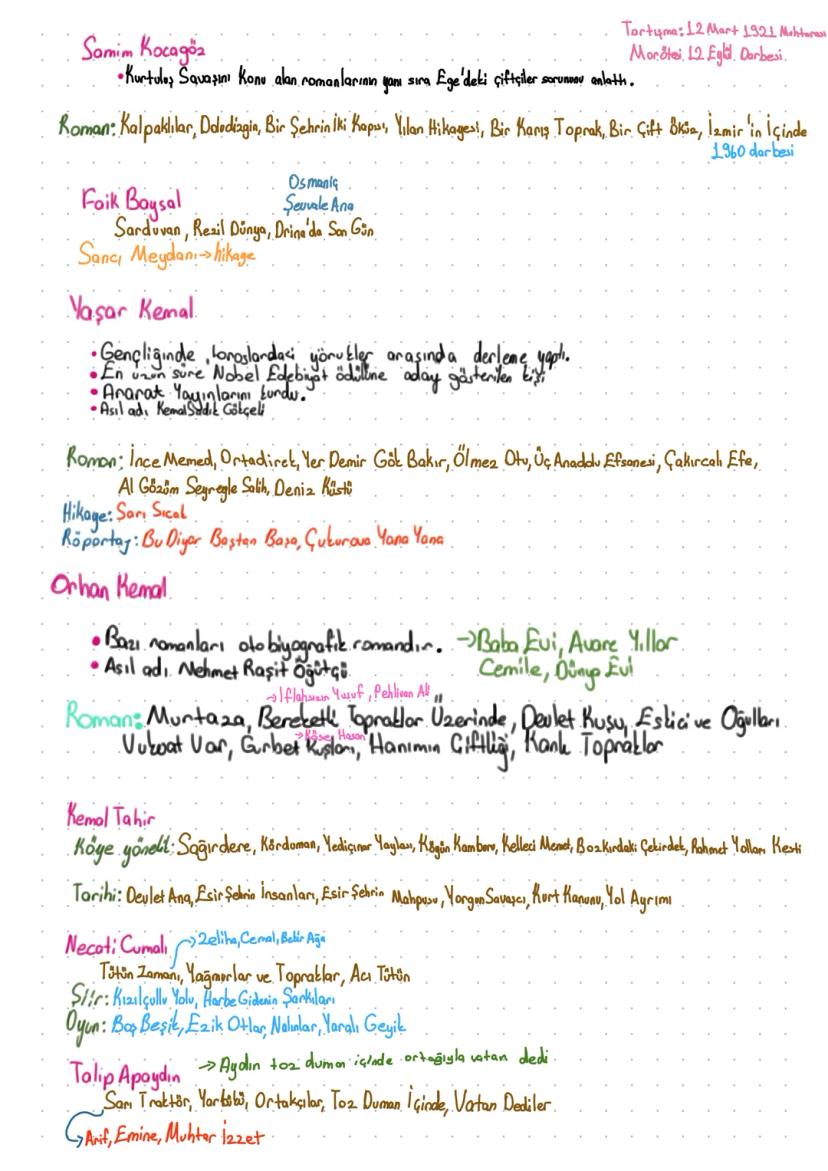 Tartışma: 12 Mart 1921 Muhtırası
Morötesi 12 Eylül Darbesi
Samim Kocagöz
• Kurtuluş Savaşını konu alan romanlarının yanı sıra Ege'deki çiftçiler sorununu anlattı.
Roman: Kalpaklılar, Doludizgin, Bir Şehrin İki Kapısı, Yılan Hikayesi, Bir Karış Toprak, Bir Çift Öküz, İzmir'in İçinde
1960 darbesi
Osmaniç
Faik Baysal Şavvale Ana
Sarduvan, Rezil Dünya, Drina'da Son Gün
Sancı Meydanı → hikaye
Yaşar Kemal
• Gençliğinde, toroslardaki yörükler arasında derleme yaptı.
• En uzun süre Nobel Edebiyat ödülüne aday gösterilen kişi
• Ararat Yayınlarını kurdu.
• Asıl adı Kemal Sadık Gökçeli
Roman: İnce Memed, Ortadirek, Yer Demir Gök Bakır, Ölmez Otu, Üç Anadolu Efsanesi, Çakırcalı Efe,
Al Gözüm Seyreyle Salih, Deniz Küstü
Hikaye: Sarı Sıcak
Röportaj: Bu Diyar Baştan Başa, Çukurova Yana Yana
Orhan Kemal
• Bazı romanları otobiyografik romandır. → Baba Evi, Avare Yıllar
• Asıl adı Mehmet Raşit Öğütçü Cemile, Dünya Evi
→ Iflahsızın Yusuf, Pehlivan Ali
Roman: Murtaza, Bereketli Topraklar Üzerinde, Devlet Kuşu, Eskici ve Oğulları
→ Köse Hasan
Vukuat Var, Gurbet Kuşları, Hanımın Çiftliği, Kanlı Topraklar
Kemal Tahir
Köye yönelik: Sağırdere, Körduman, Yediçınar Yaylası, Köyün Kamburu, Kelleci Memet, Bozkırdaki Çekirdek, Rahmet Yolları Kesti
Tarihi: Devlet Ana, Esir Şehrin İnsanları, Esir Şehrin Mahpusu, Yorgun Savaşçı, Kurt Kanunu, Yol Ayrımı
Necati Cumalı → Zeliha, Cemal, Bekir Ağa
Tütün Zamanı, Yağmurlar ve Topraklar, Acı Tütün
Şiir: Kızılçullu Yolu, Harbe Gidenin Şarkıları
Oyun: Boş Beşik, Ezik Otlar, Nalınlar, Yaralı Geyik
Talip Apaydın → Aydın toz duman içinde ortağıyla vatan dedi
Sarı Traktör, Yarbükü, Ortakçılar, Toz Duman İçinde, Vatan Dediler
→ Arif, Emine, Muhtar İzzet